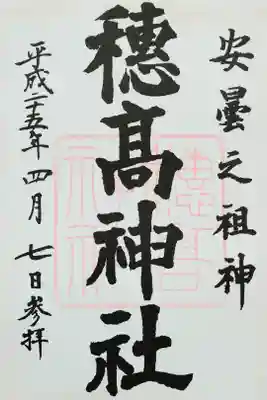 安曇之祖神
穗髙神社
平成二十五年四月七日参拝